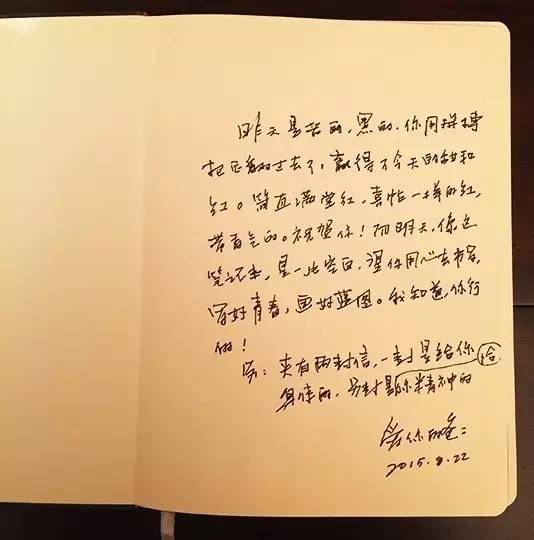 昨天是苦的,黑的.你用拼搏
把它翻过去了,赢得了今天的甜和
红。简直满堂红,喜帖一样的红,
带香气的。祝贺你!而明天,像这
笔记本,是一片空白,望你用心去书写,
写好青春,画好蓝图。我知道,你行
的!
另:夹有两封信,一封是给你
身体的,另封是给你精神的
爱你的爸:
2015.8.22